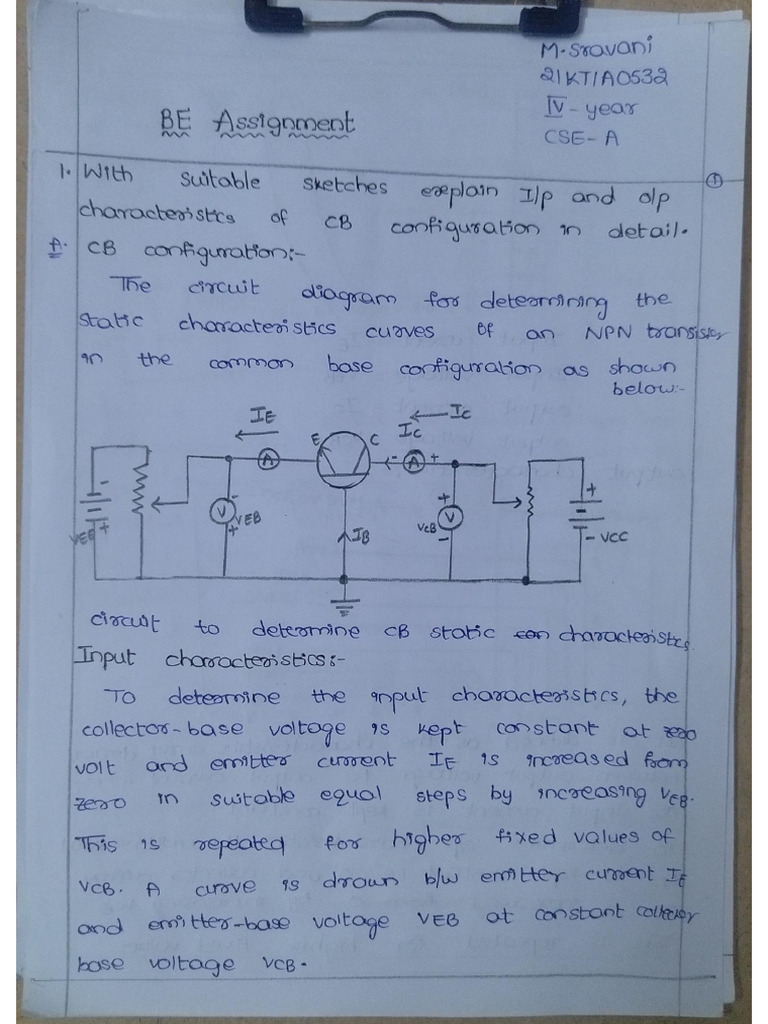 M. Sravani
21KT1A0532
IV - year
CSE - A
BE Assignment
1
1. With suitable sketches explain I/p and o/p
characteristics of CB configuration in detail.
A. CB configuration:-
The circuit diagram for determining the
static characteristics curves of an NPN transistor
in the common base configuration as shown
below:-
IE
IC
IC
E
C
A
- A +
VEE
- +
V
- +
VEB
IB
V
+ -
VCB
+
- VCC
circuit to determine CB static con characteristics
Input characteristics:-
To determine the input characteristics, the
collector-base voltage is kept constant at zero
volt and emitter current IE is increased from
zero in suitable equal steps by increasing VEB.
This is repeated for higher fixed values of
VCB. A curve is drown b/w emitter current IE
and emitter-base voltage VEB at constant collector
base voltage VCB.